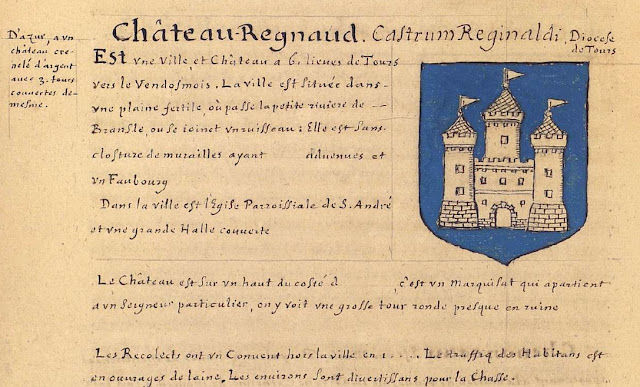 Château-Regnaud. Castrum Reginaldi, Diocese
de Tours
D'azur, a vn
château cre-
nelé d'argent
auec 3. tours
couuertes de-
mesme.
Est vne Ville, et Château a 6. lieues de Tours
vers le Vendosmois. La ville est située dans-
vne plaine fertile, où passe la petite riuiere de —
Bransle, ou se ioinct vn ruisseau; Elle est sans-
closture de murailles ayant adduenues et
vn Faubourg
Dans la ville est l'Eglise Parroissiale de S. André
et vne grande Halle couuerte
Le Château est sur vn haut du costé d , c'est vn Marquisat qui apartient
a vn Seigneur particulier, on y voit vne grosse tour ronde presque en ruine
Les Recolects ont vn Conuent hors la ville en 1.... Le traffiq des Habitans est
en ouurages de laine. Les enuirons sont diuertissans pour la Chasse.